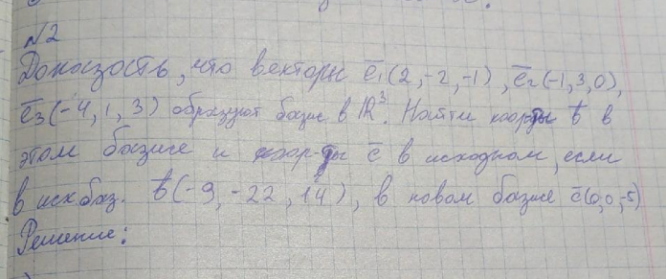 N2
Доказать, что векторы e̅₁(2,-2,-1), e̅₂(-1,3,0),
e̅₃(-4,1,3) образуют базис в ℝ³. Найти коор-ты b̅ в
этом базисе и коор-ты c̅ в исходном, если
в исх баз. b̅(-9,-22,14), в новом базисе c̅(0,0,-5)
Решение: